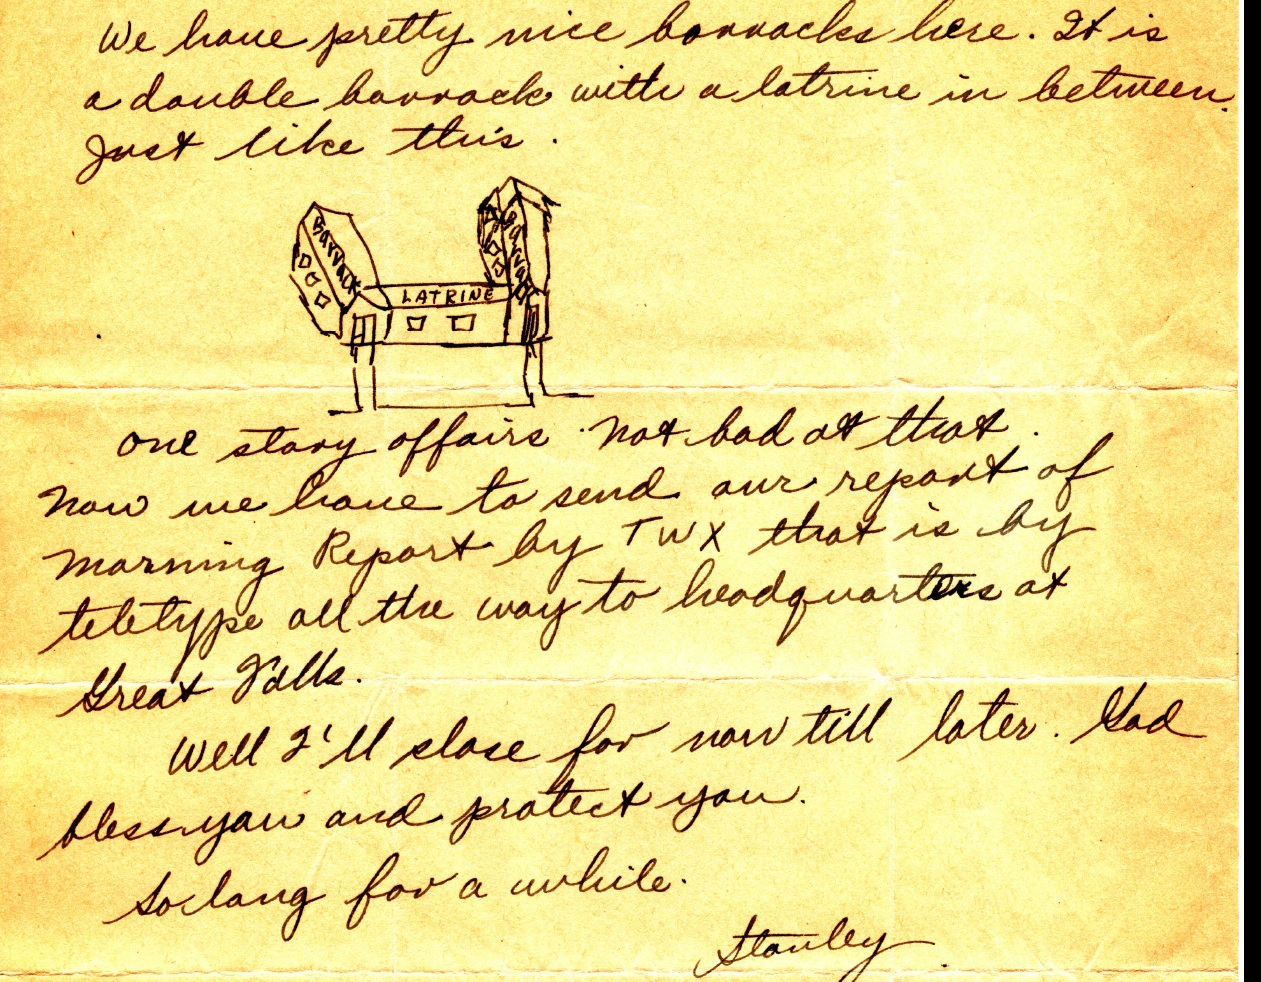 We have pretty nice barracks here. It is
a double barrack with a latrine in between.
Just like this.
BARRACK
LATRINE
BARRACK
one story affairs. Not bad at that.
Now we have to send our report of
Morning Report by TWX that is by
teletype all the way to headquarters at
Great Falls.
Well I'll close for now till later. God
bless you and protect you.
So long for a while.
Stanley